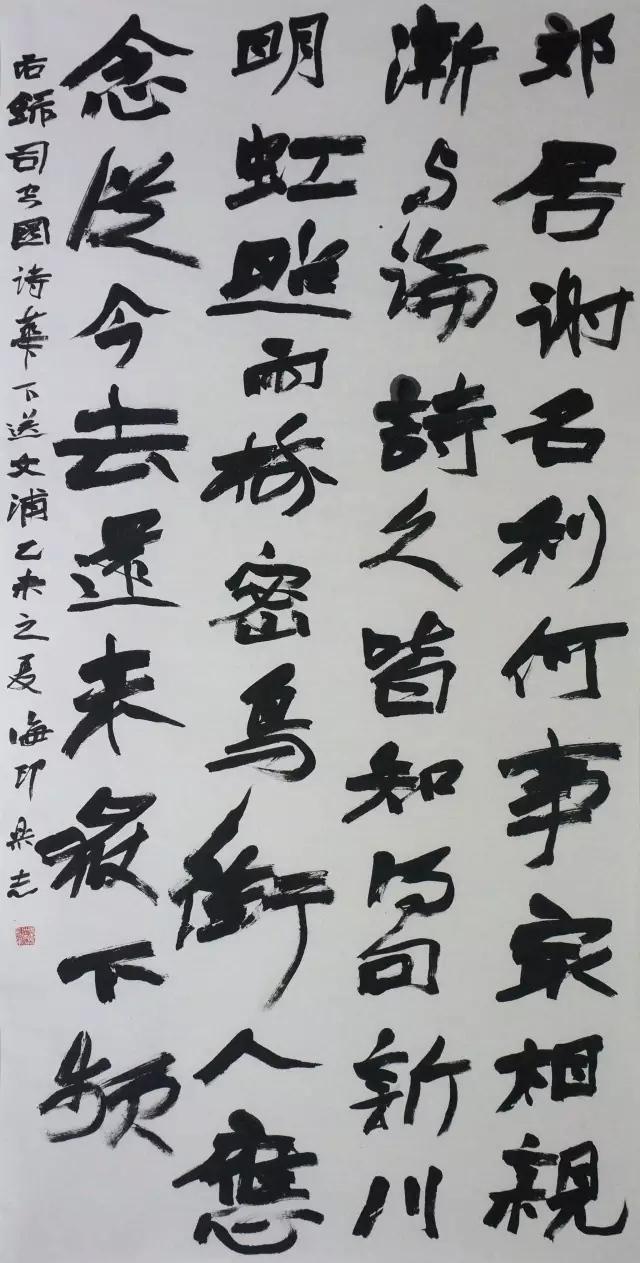 郊居谢名利何事最相親
漸与論詩久皆知得句新川
明虹照雨树密鳥衝人應
念従今去還来嶽下頻
右錄司空圖诗華下送文浦乙未之夏海印